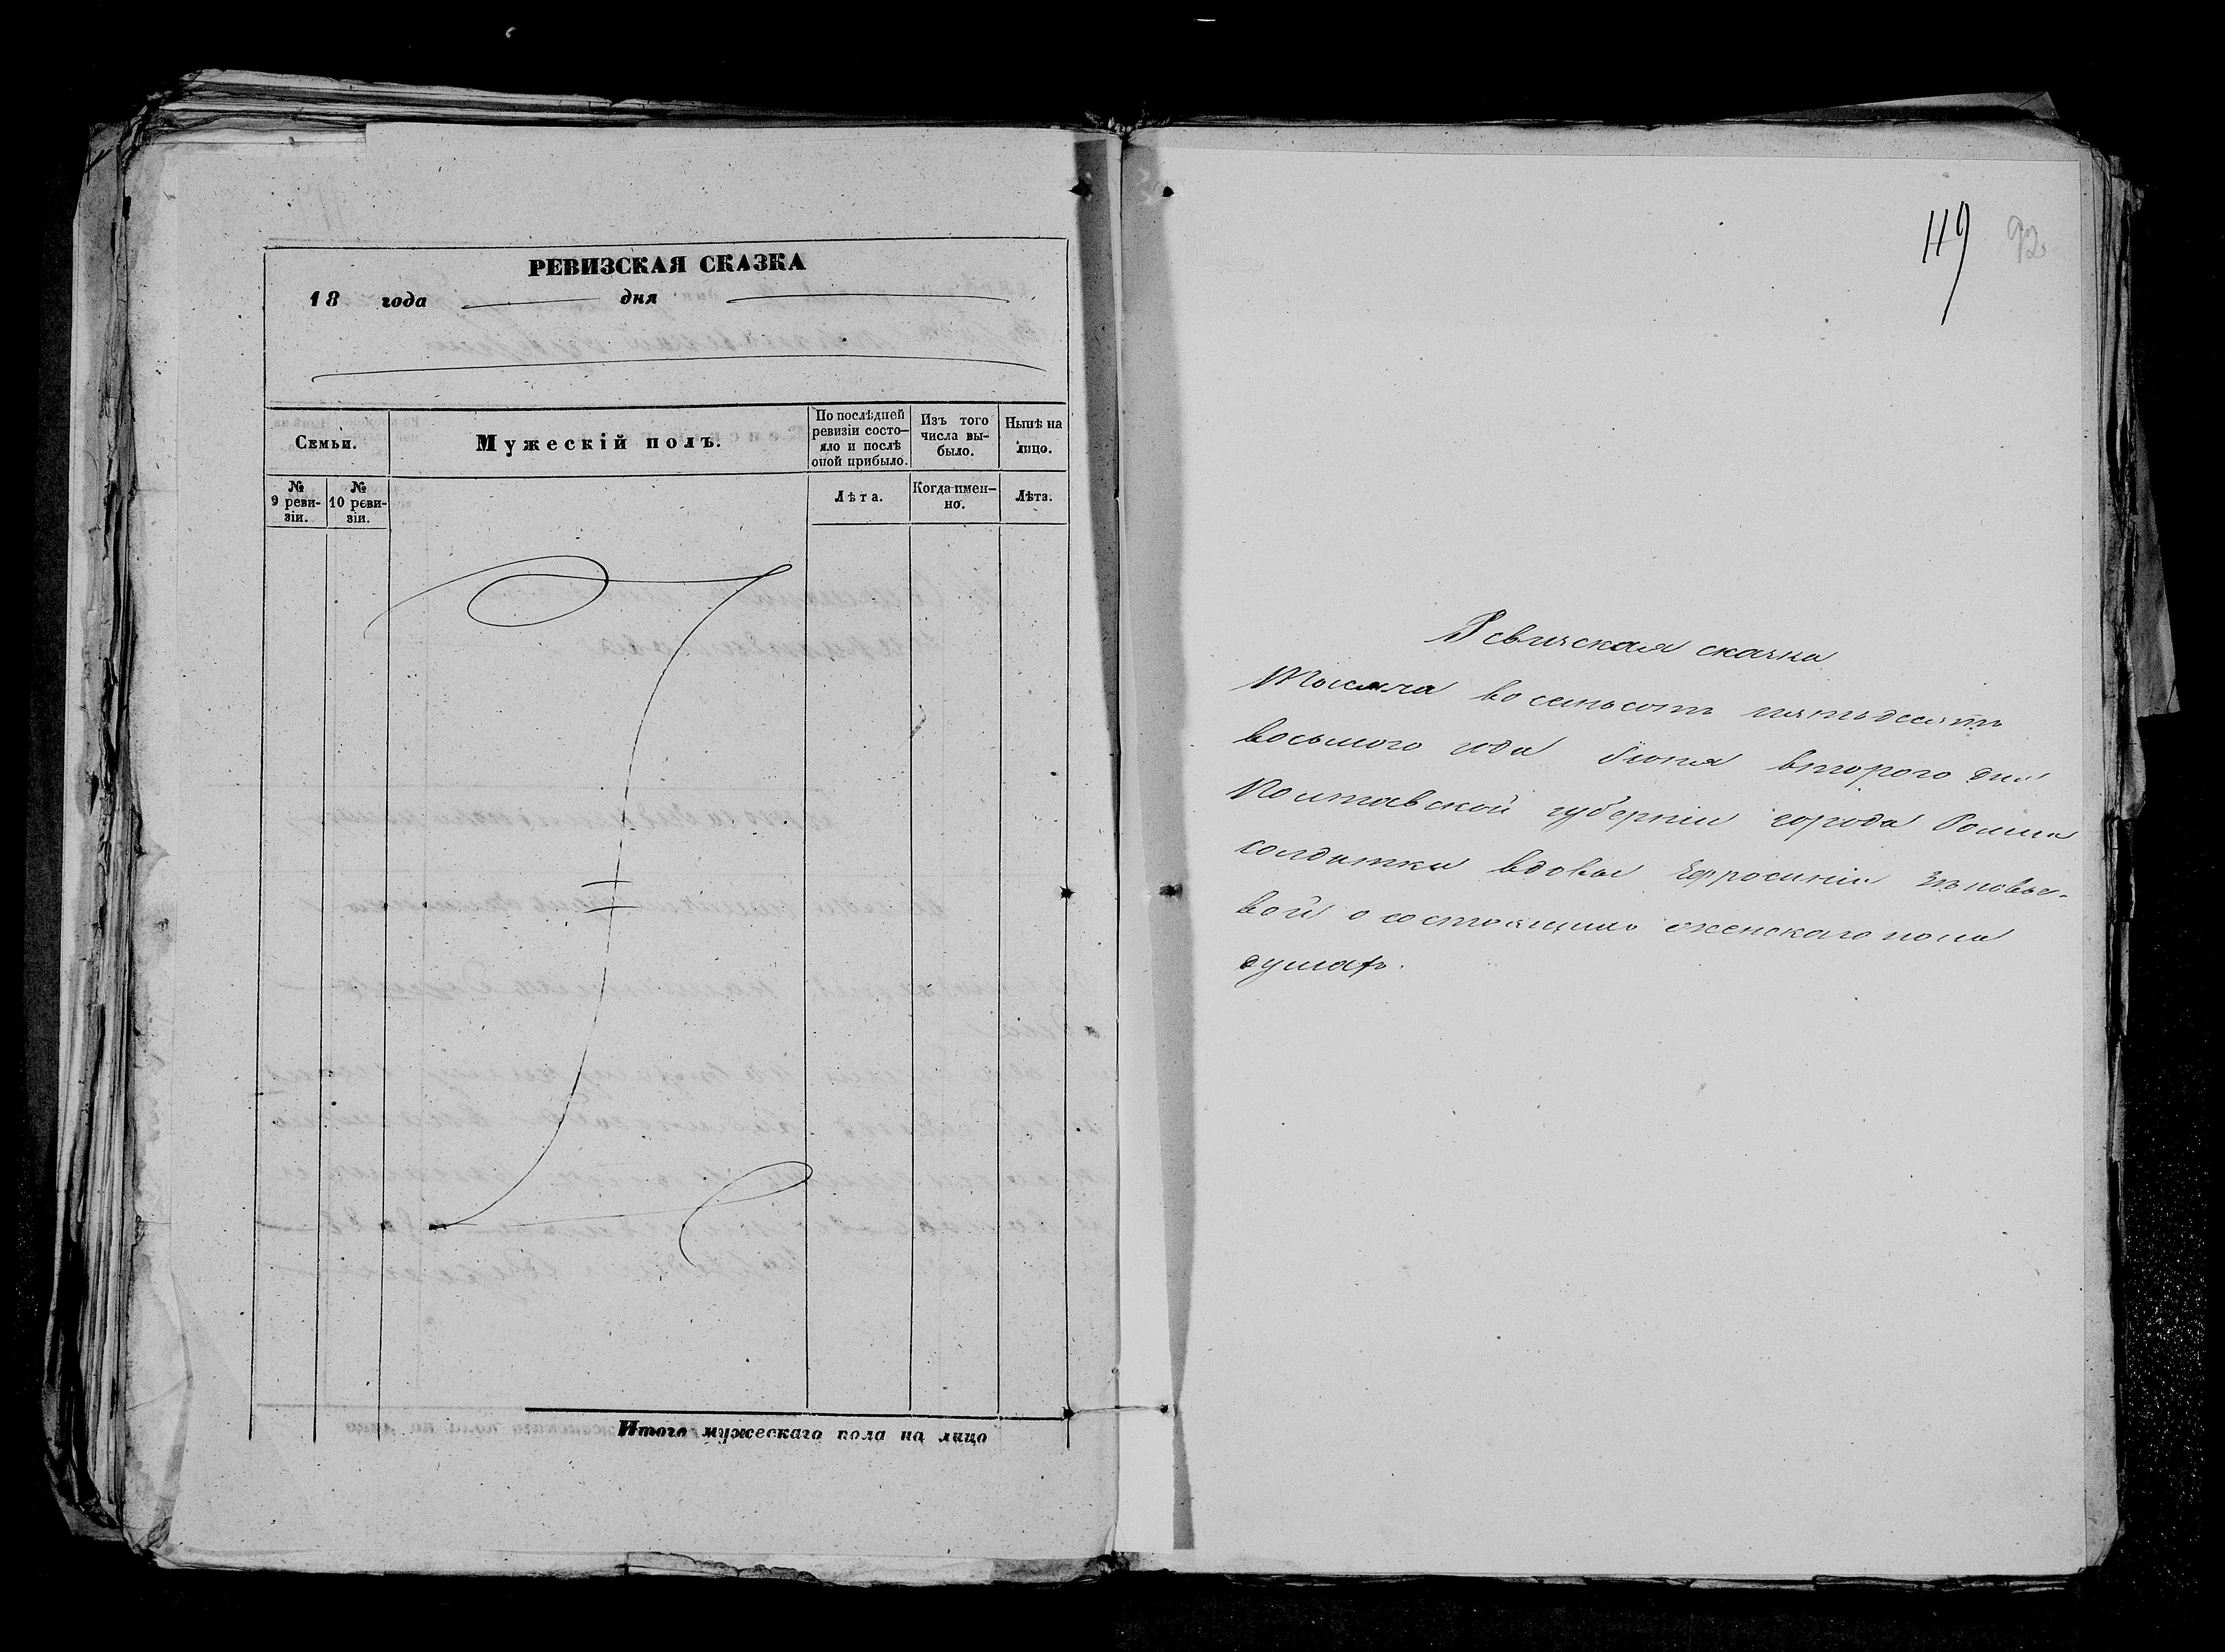 РЕВИЗСКАЯ СКАЗКА
18 года дня
Семьи.
Мужескій полъ.
По послѣдней
ревизіи состо-
яло и послѣ
оной прибыло.
Изъ того
числа вы-
было.
Нынѣ на
лицо.
№
9 реви-
зіи.
№
10 реви-
зіи.
Лѣта.
Когда имен-
но.
Лѣта.
Итого мужескаго пола на лицо
119 92
Ревизская сказка
Тысяча восемьсотъ пятьдесятъ
восьмого года Іюня второго дня
Полтавской губерніи города Ромна
солдатки вдовы Ефросиніи
вой о состоящихъ женскаго пола
душахъ.